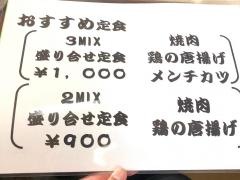 おすすめ定食
3MIX
盛り合せ定食
¥1,000
焼肉
鶏の唐揚げ
メンチカツ
2MIX
盛り合せ定食
¥900
焼肉
鶏の唐揚げ